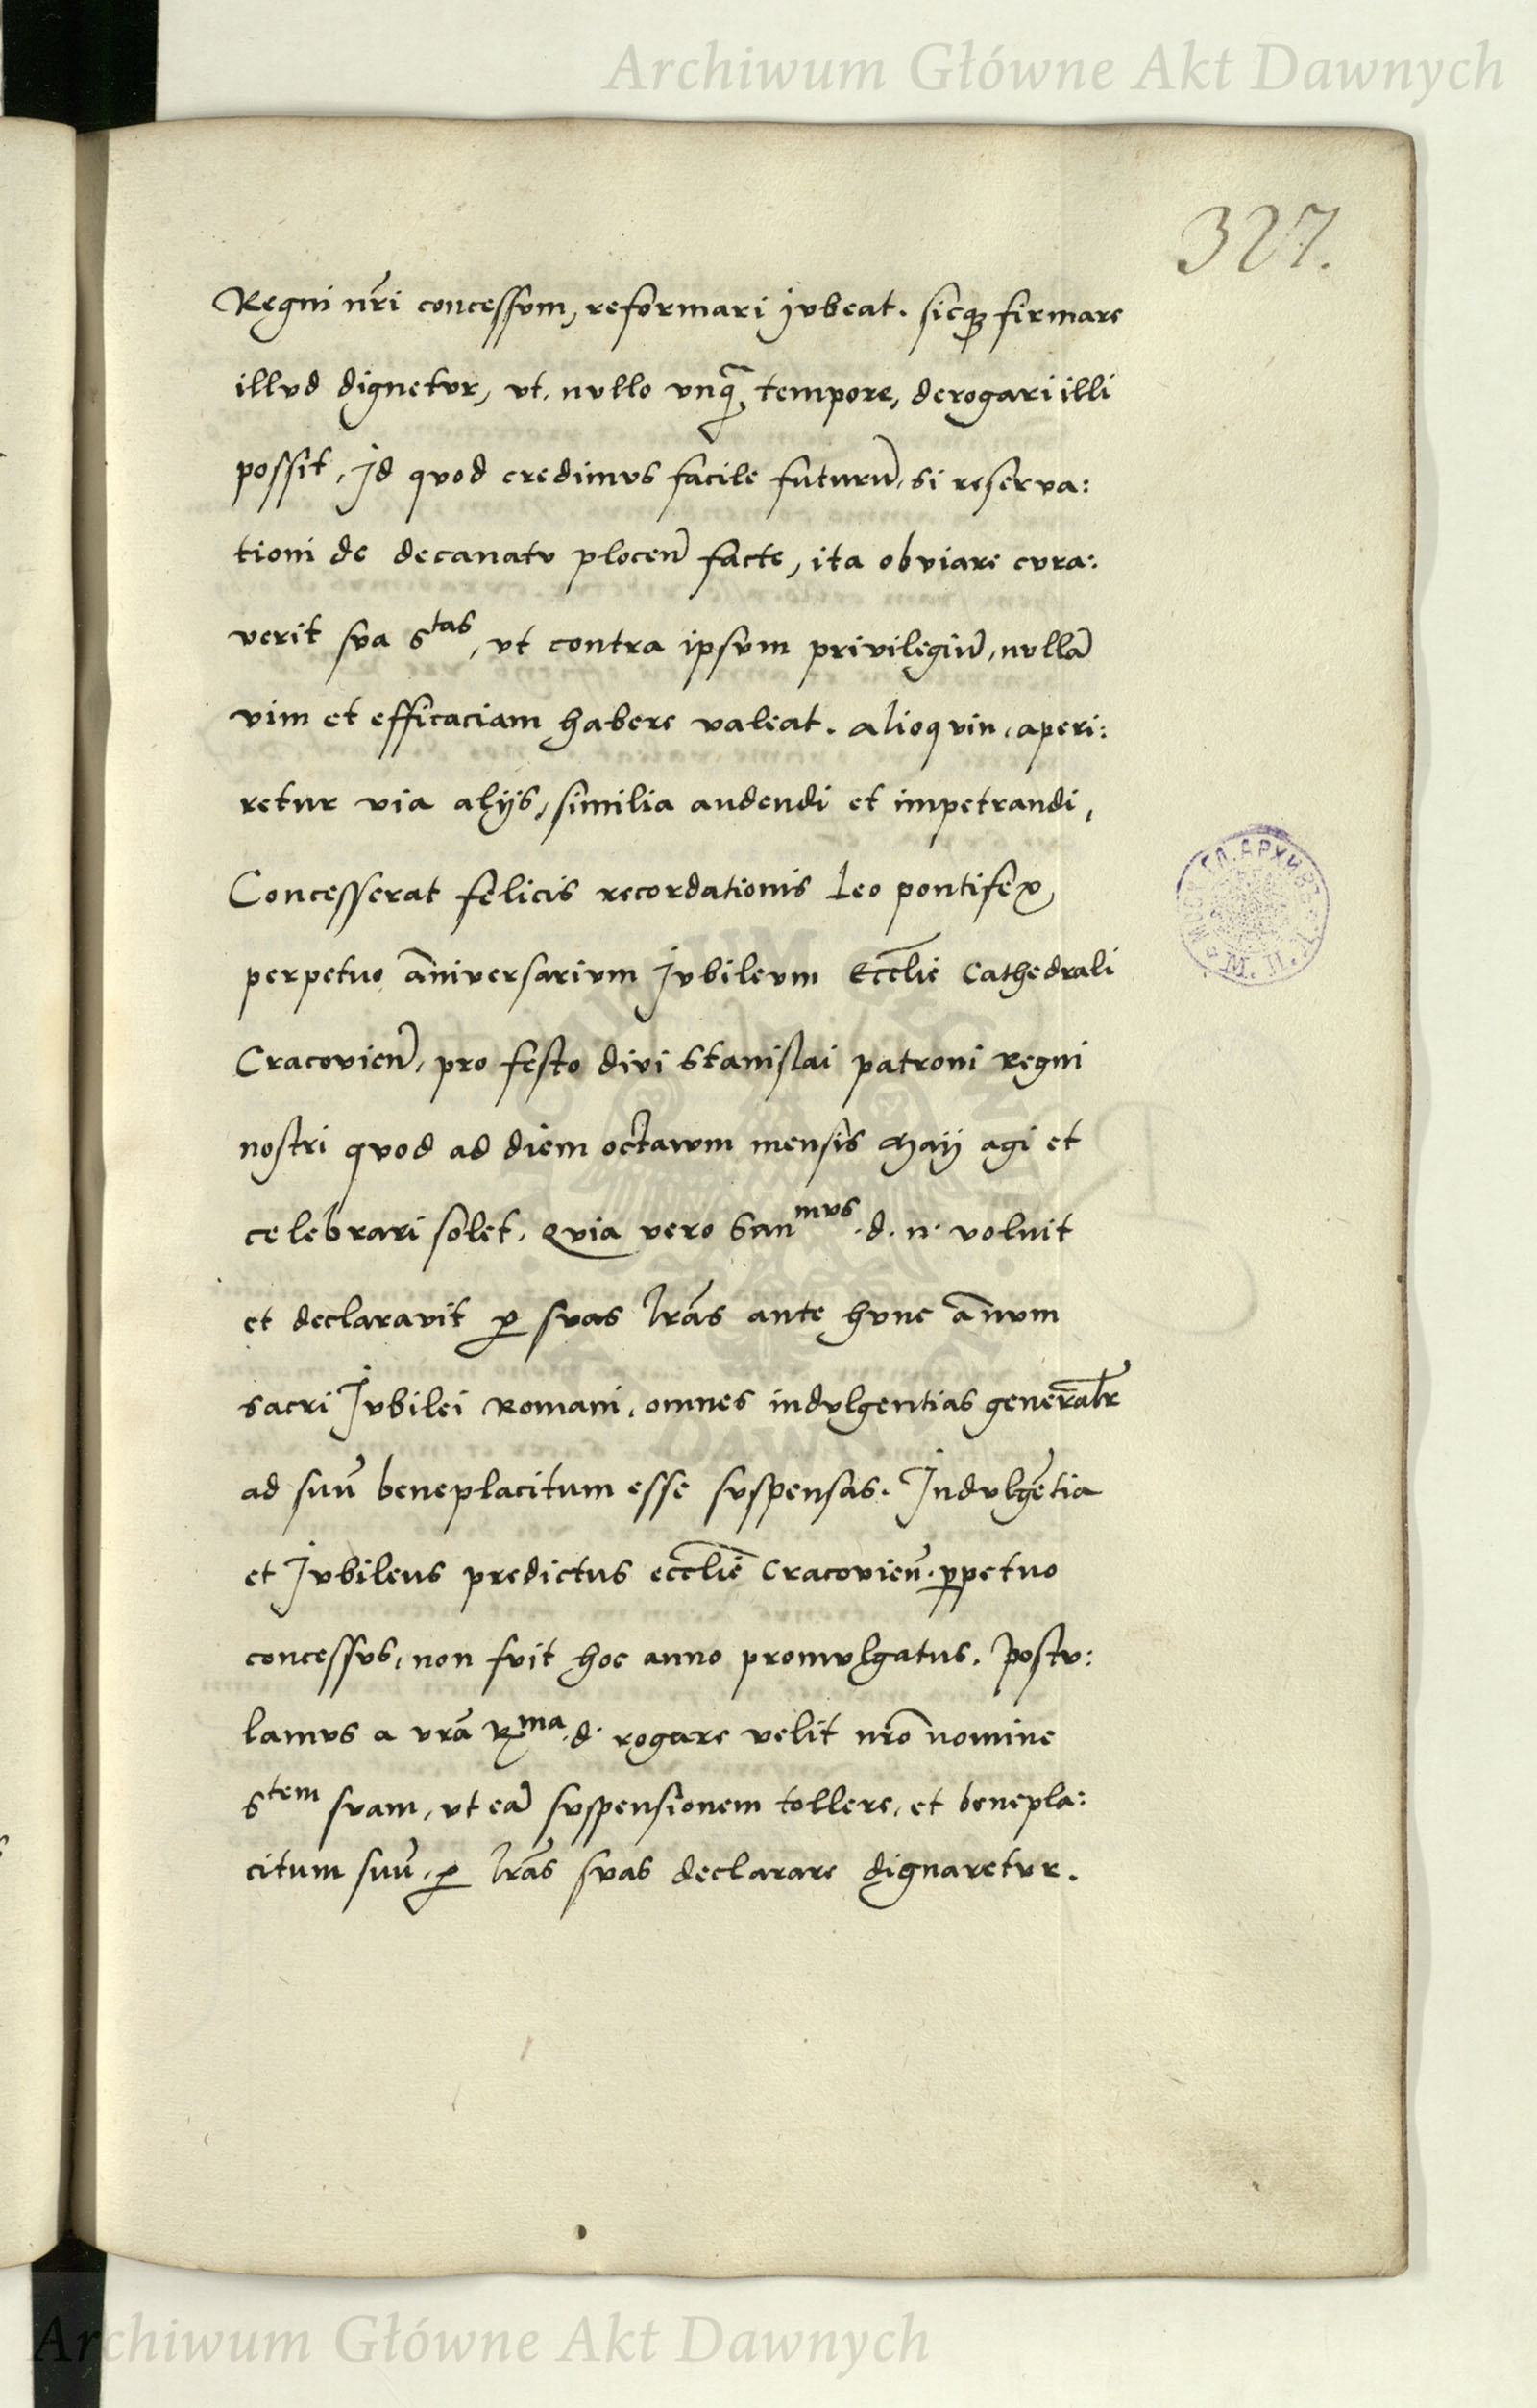 Archiwum Główne Akt Dawnych
327.
Regni nr̃i concessvm, reformari jvbeat. sicq₃ firmare
illvd dignetvr, vt, nvllo vnq̃, tempore, derogari illi
possit, Jd qvod credimvs facile futurũ, si reserva:
tioni de decanatv plocen̄ facte, ita obviare cvra:
verit sva Sᵗᵃˢ, vt contra ipsvm privilegiũ, nvllã
vim et efficaciam habere valeat. alioqvin, aperi:
retur via alijs, similia audendi et impetrandi,
Concesserat felicis recordationis Leo pontifex,
perpetuo ãniversarivm Jvbilevm Eccl̃ie Cathedrali
Cracovien̄, pro festo divi Stanislai patroni Regni
nostri qvod ad diem octavvm mensis Maij agi et
celebrari solet, Qvia vero Sanᵐᵛˢ. d. n. voluit
et declaravit ꝑ svas l̃ras ante hvnc ãnvm
sacri Jvbilei Romani, omnes indvlgentias general̃r
ad suũ beneplacitum esse svspensas. Indvlgẽtia
et Jvbileus predictus eccl̃ie Cracovien̄. ꝑpetuo
concessvs, non fvit hoc anno promvlgatus. Postv:
lamvs a vrã Rᵐᵃ. d. rogare velit nrõ nomine
Sᵗᵉᵐ svam, vt eã svspensionem tollere, et benepla:
citum suũ, ꝑ l̃ras svas declarare dignaretvr.
Archiwum Główne Akt Dawnych